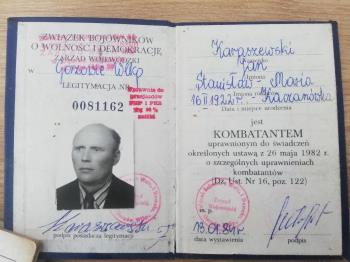 ZWIĄZEK BOJOWNIKÓW
O WOLNOŚĆ I DEMOKRACJĘ
ZARZĄD WOJEWÓDZKI
w Gorzowie Wlkp
LEGITYMACJA NR
0081162
Uprawnia do
przejazdów
PKP i PKS
zniżki
podpis posiadacza legitymacji
Karaszewski
Jan
Imiona
Stanisław - Maria
16 II 1922
Data i miejsce urodzenia
jest
KOMBATANTEM
uprawnionym do świadczeń
określonych ustawą z 26 maja 1982 r.
o szczególnych uprawnieniach
kombatantów
(Dz. Ust. Nr 16, poz. 122)
Zarząd
Wojewódzki
m. p.
data wystawienia
podpis